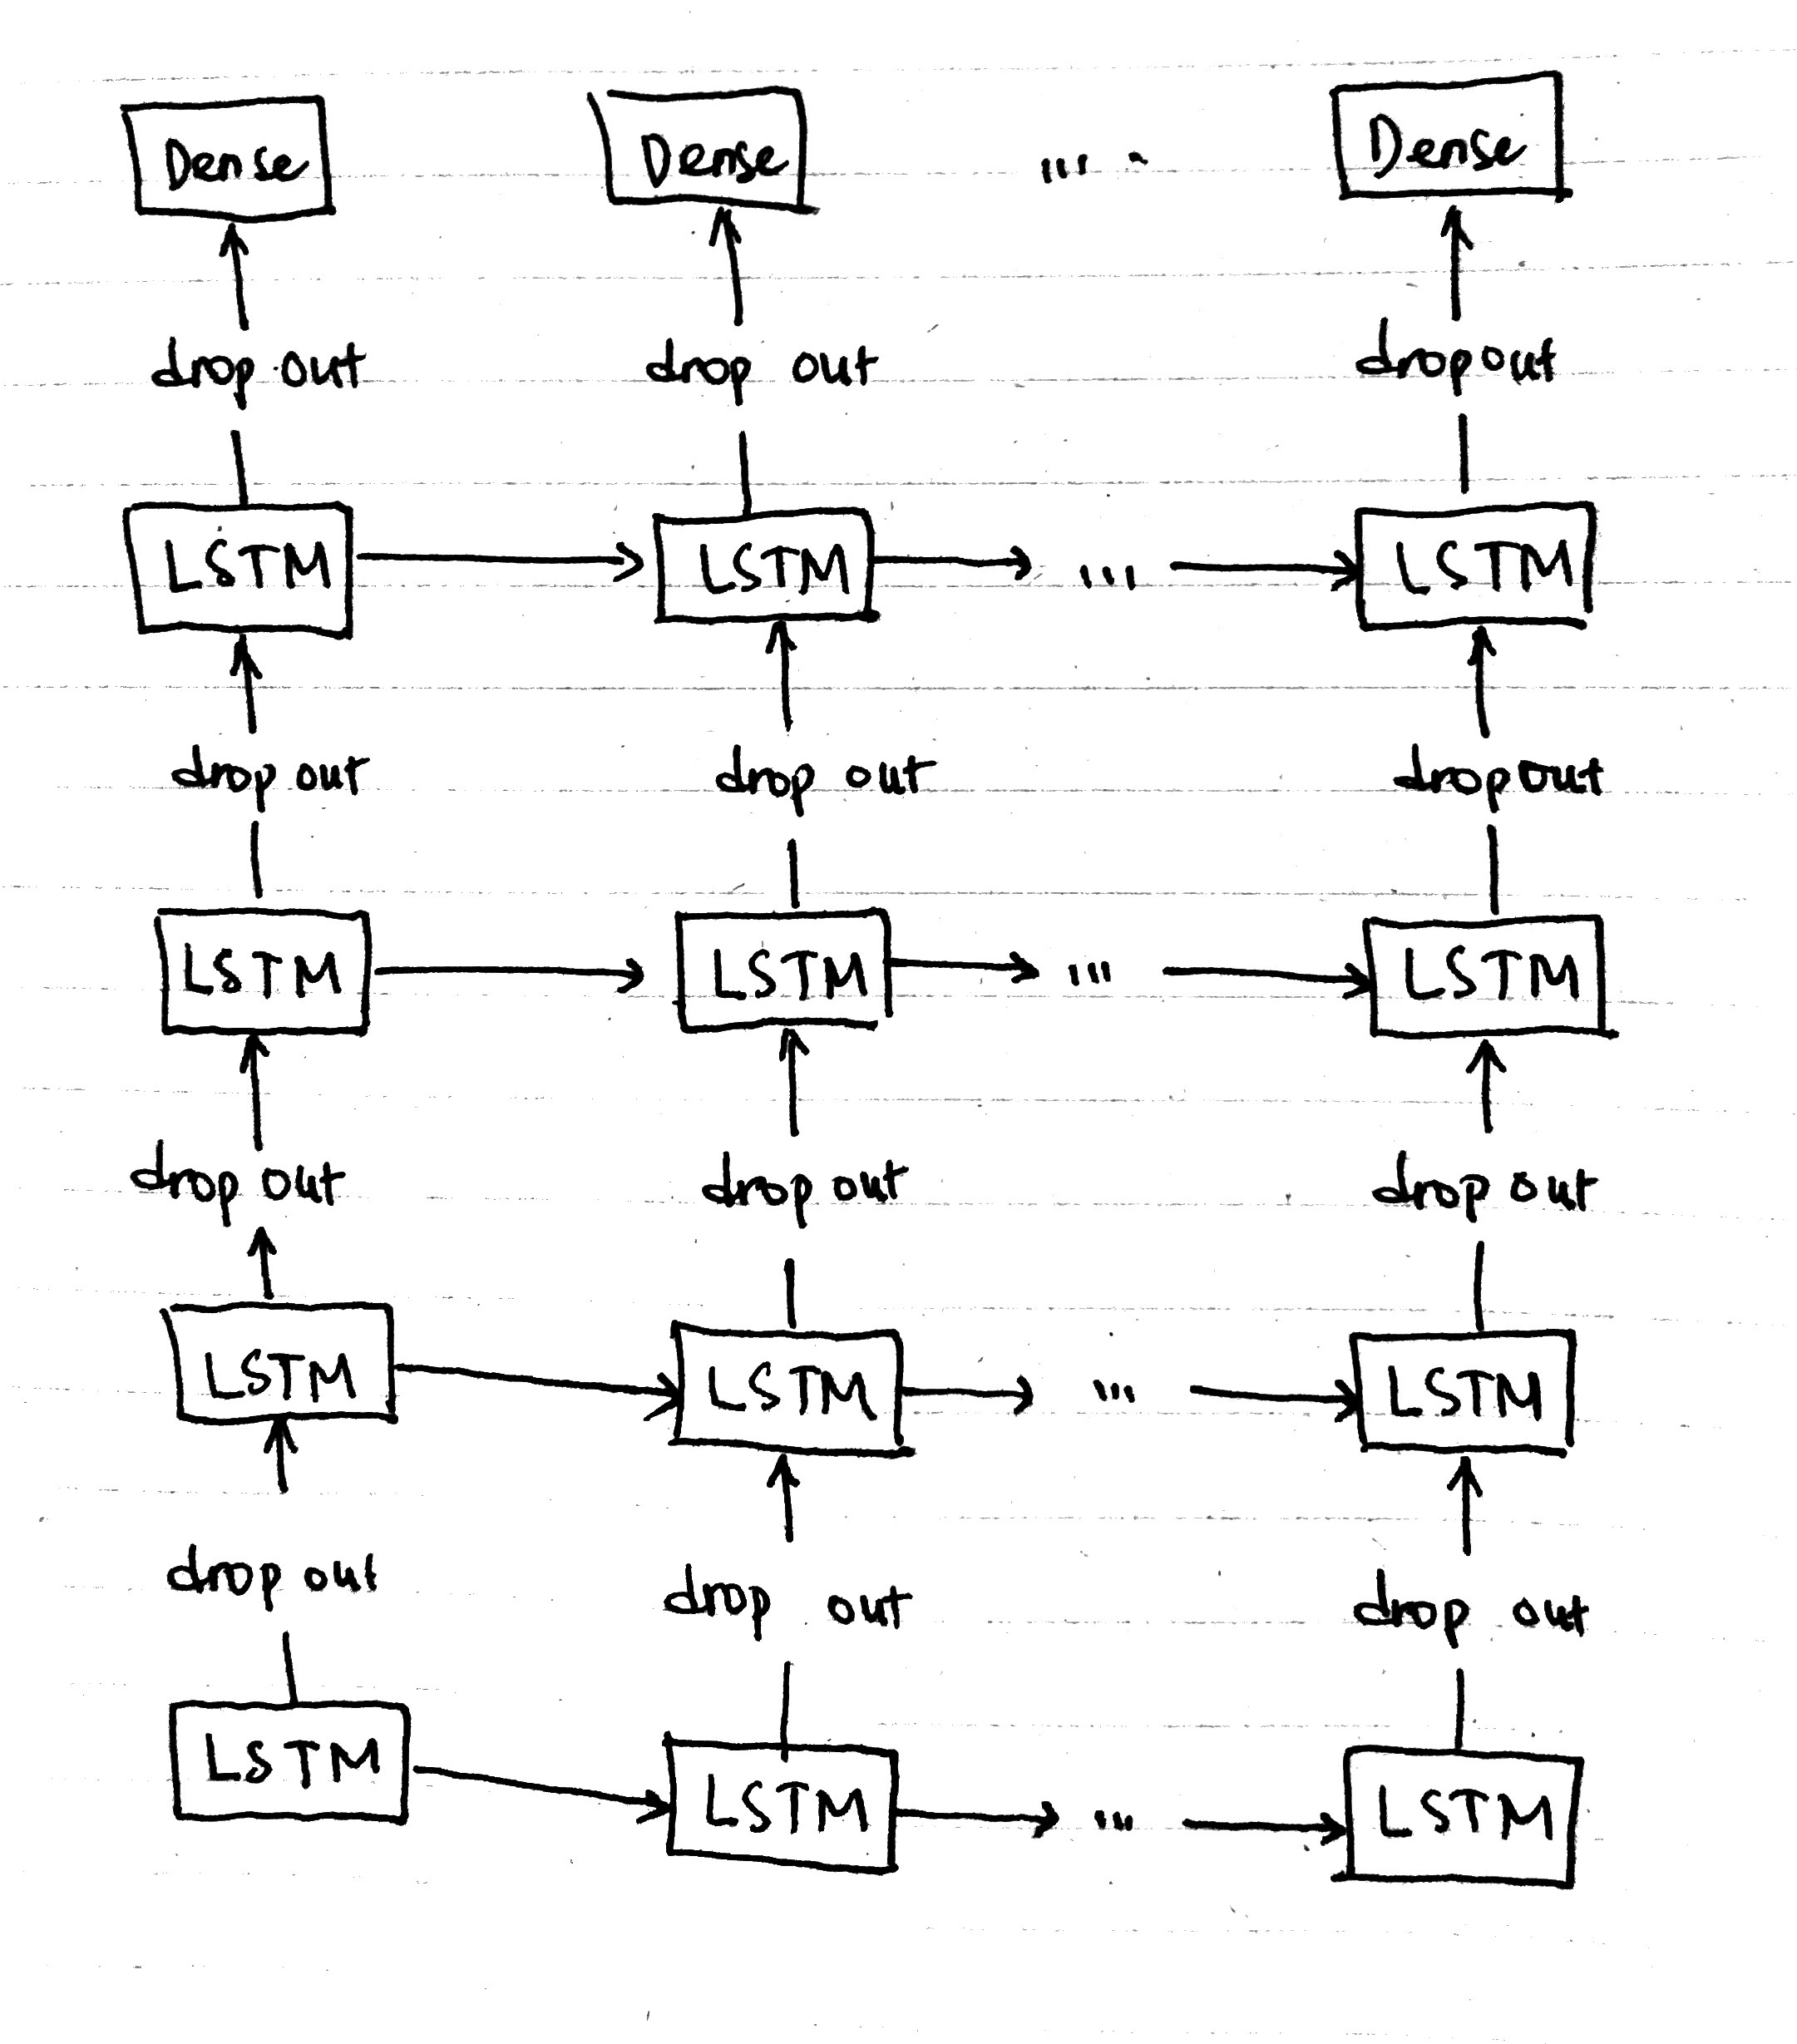 Dense Dense .... Dense
drop out drop out dropout
LSTM LSTM ... LSTM
drop out drop out dropout
LSTM LSTM ... LSTM
drop out drop out drop out
LSTM LSTM ... LSTM
drop out drop out drop out
LSTM LSTM ... LSTM